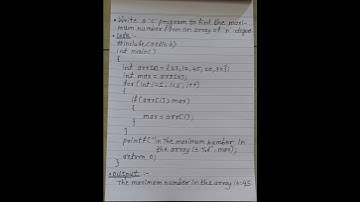 • Write a 'c' program to find the maxi-
mum number from an array of 'n' integer
• Code :-
#include<stdio.h>
int main()
{
int arr[] = {23,12,45,20,
int max = arr[0];
for (int i=1; i<5; i++)
{
if(arr[i]>max)
{
max = arr[i];
}
}
printf("\n The maximum number in
the array is %d", max);
return 0;
}
• output :-
The maximum number in the array is:45